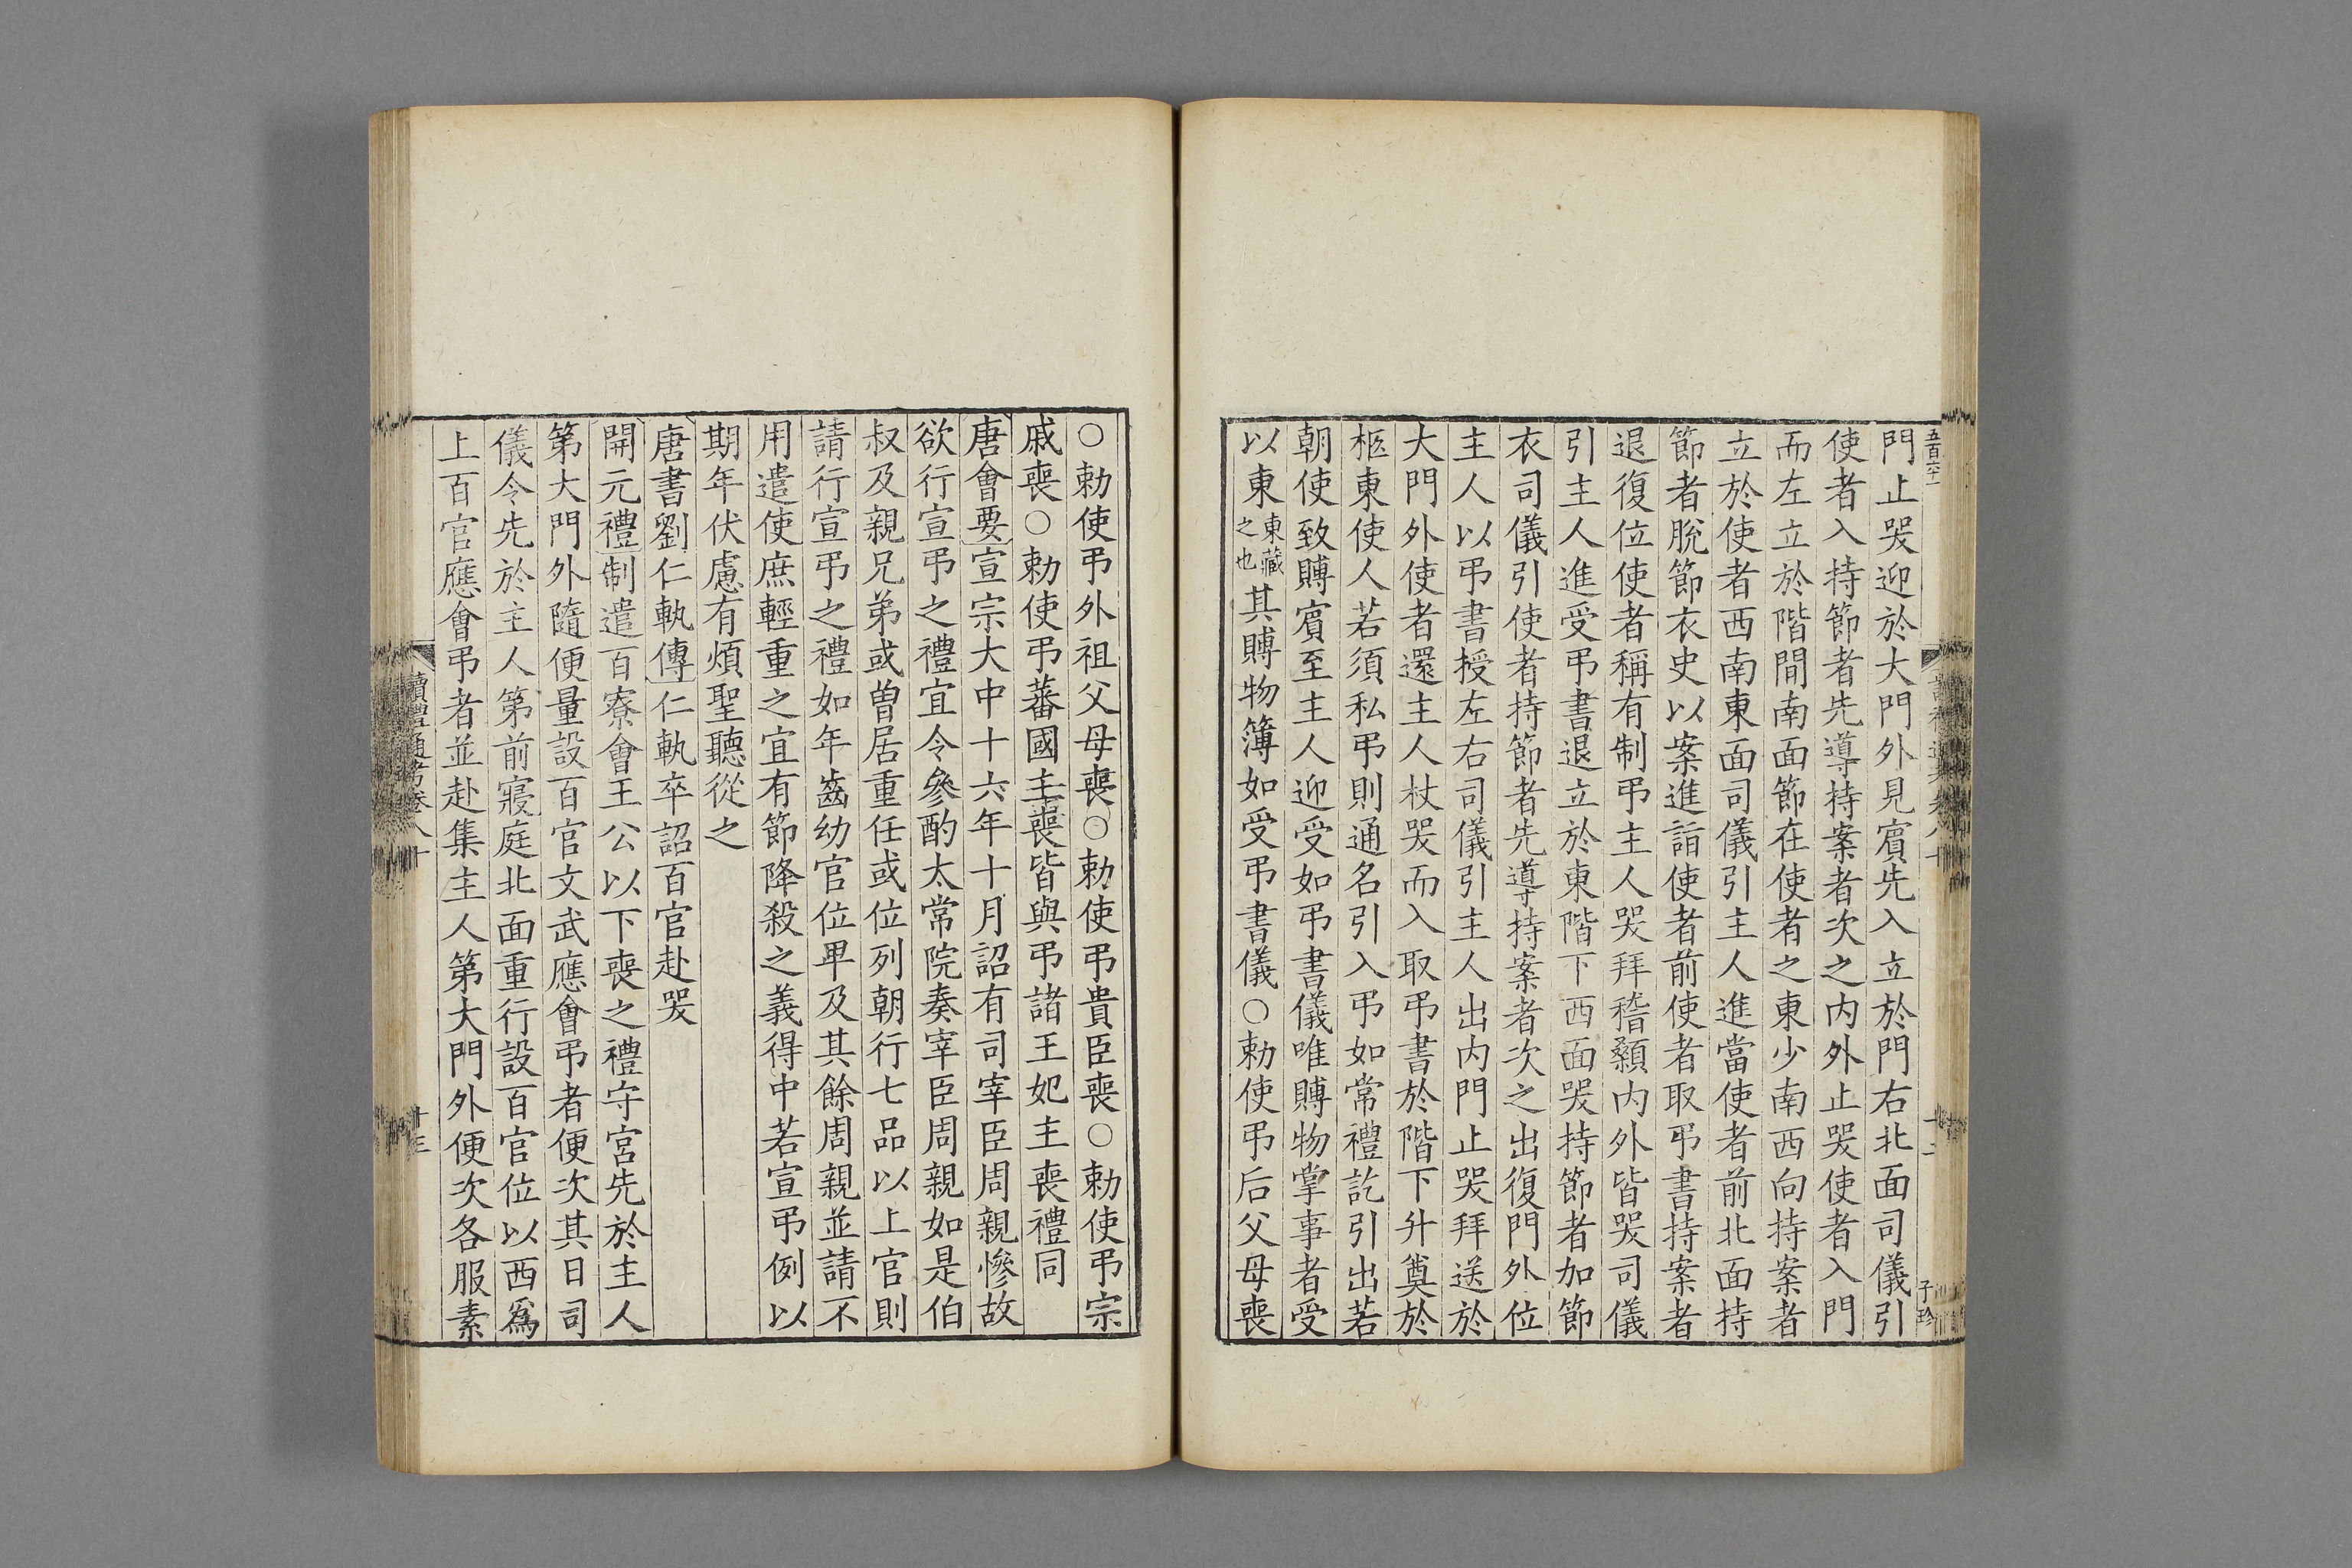 門止哭迎於大門外見賔先入立於門右北面司儀引
使者入持節者先導持案者次之内外止哭使者入門
而左立於階間南面節在使者之東少南西向持案者
立於使者西南東面司儀引主人進當使者前北面持
節者脫節衣史以案進詣使者前使者取弔書持案者
退復位使者稱有制弔主人哭拜稽顙内外皆哭司儀
引主人進受弔書退立於東階下西面哭持節者加節
衣司儀引使者持節者先導持案者次之出復門外位
主人以弔書授左右司儀引主人出内門止哭拜送於
大門外使者還主人杖哭而入取弔書於階下升奠於
柩東使人若須私弔則通名引入弔如常禮訖引出若
朝使致賻賔至主人迎受如弔書儀唯賻物掌事者受
以東東藏之也其賻物簿如受弔書儀○勅使弔后父母喪
○勅使弔外祖父母喪○勅使弔貴臣喪○勅使弔宗
戚喪○勅使弔蕃國主喪皆與弔諸王妃主喪禮同
唐會要宣宗大中十六年十月詔有司宰臣周親慘故
欲行宣弔之禮宜令參酌太常院奏宰臣周親如是伯
叔及親兄弟或曽居重任或位列朝行七品以上官則
請行宣弔之禮如年齒幼官位卑及其餘周親並請不
用遣使庶輕重之宜有節降殺之義得中若宣弔例以
期年伏慮有煩聖聽從之
唐書劉仁軌傳仁軌卒詔百官赴哭
開元禮制遣百寮會王公以下喪之禮守宮先於主人
第大門外隨便量設百官文武應會弔者便次其日司
儀令先於主人第前寢庭北面重行設百官位以西爲
上百官應會弔者並赴集主人第大門外便次各服素
讀禮通考卷八十
十三
子珍